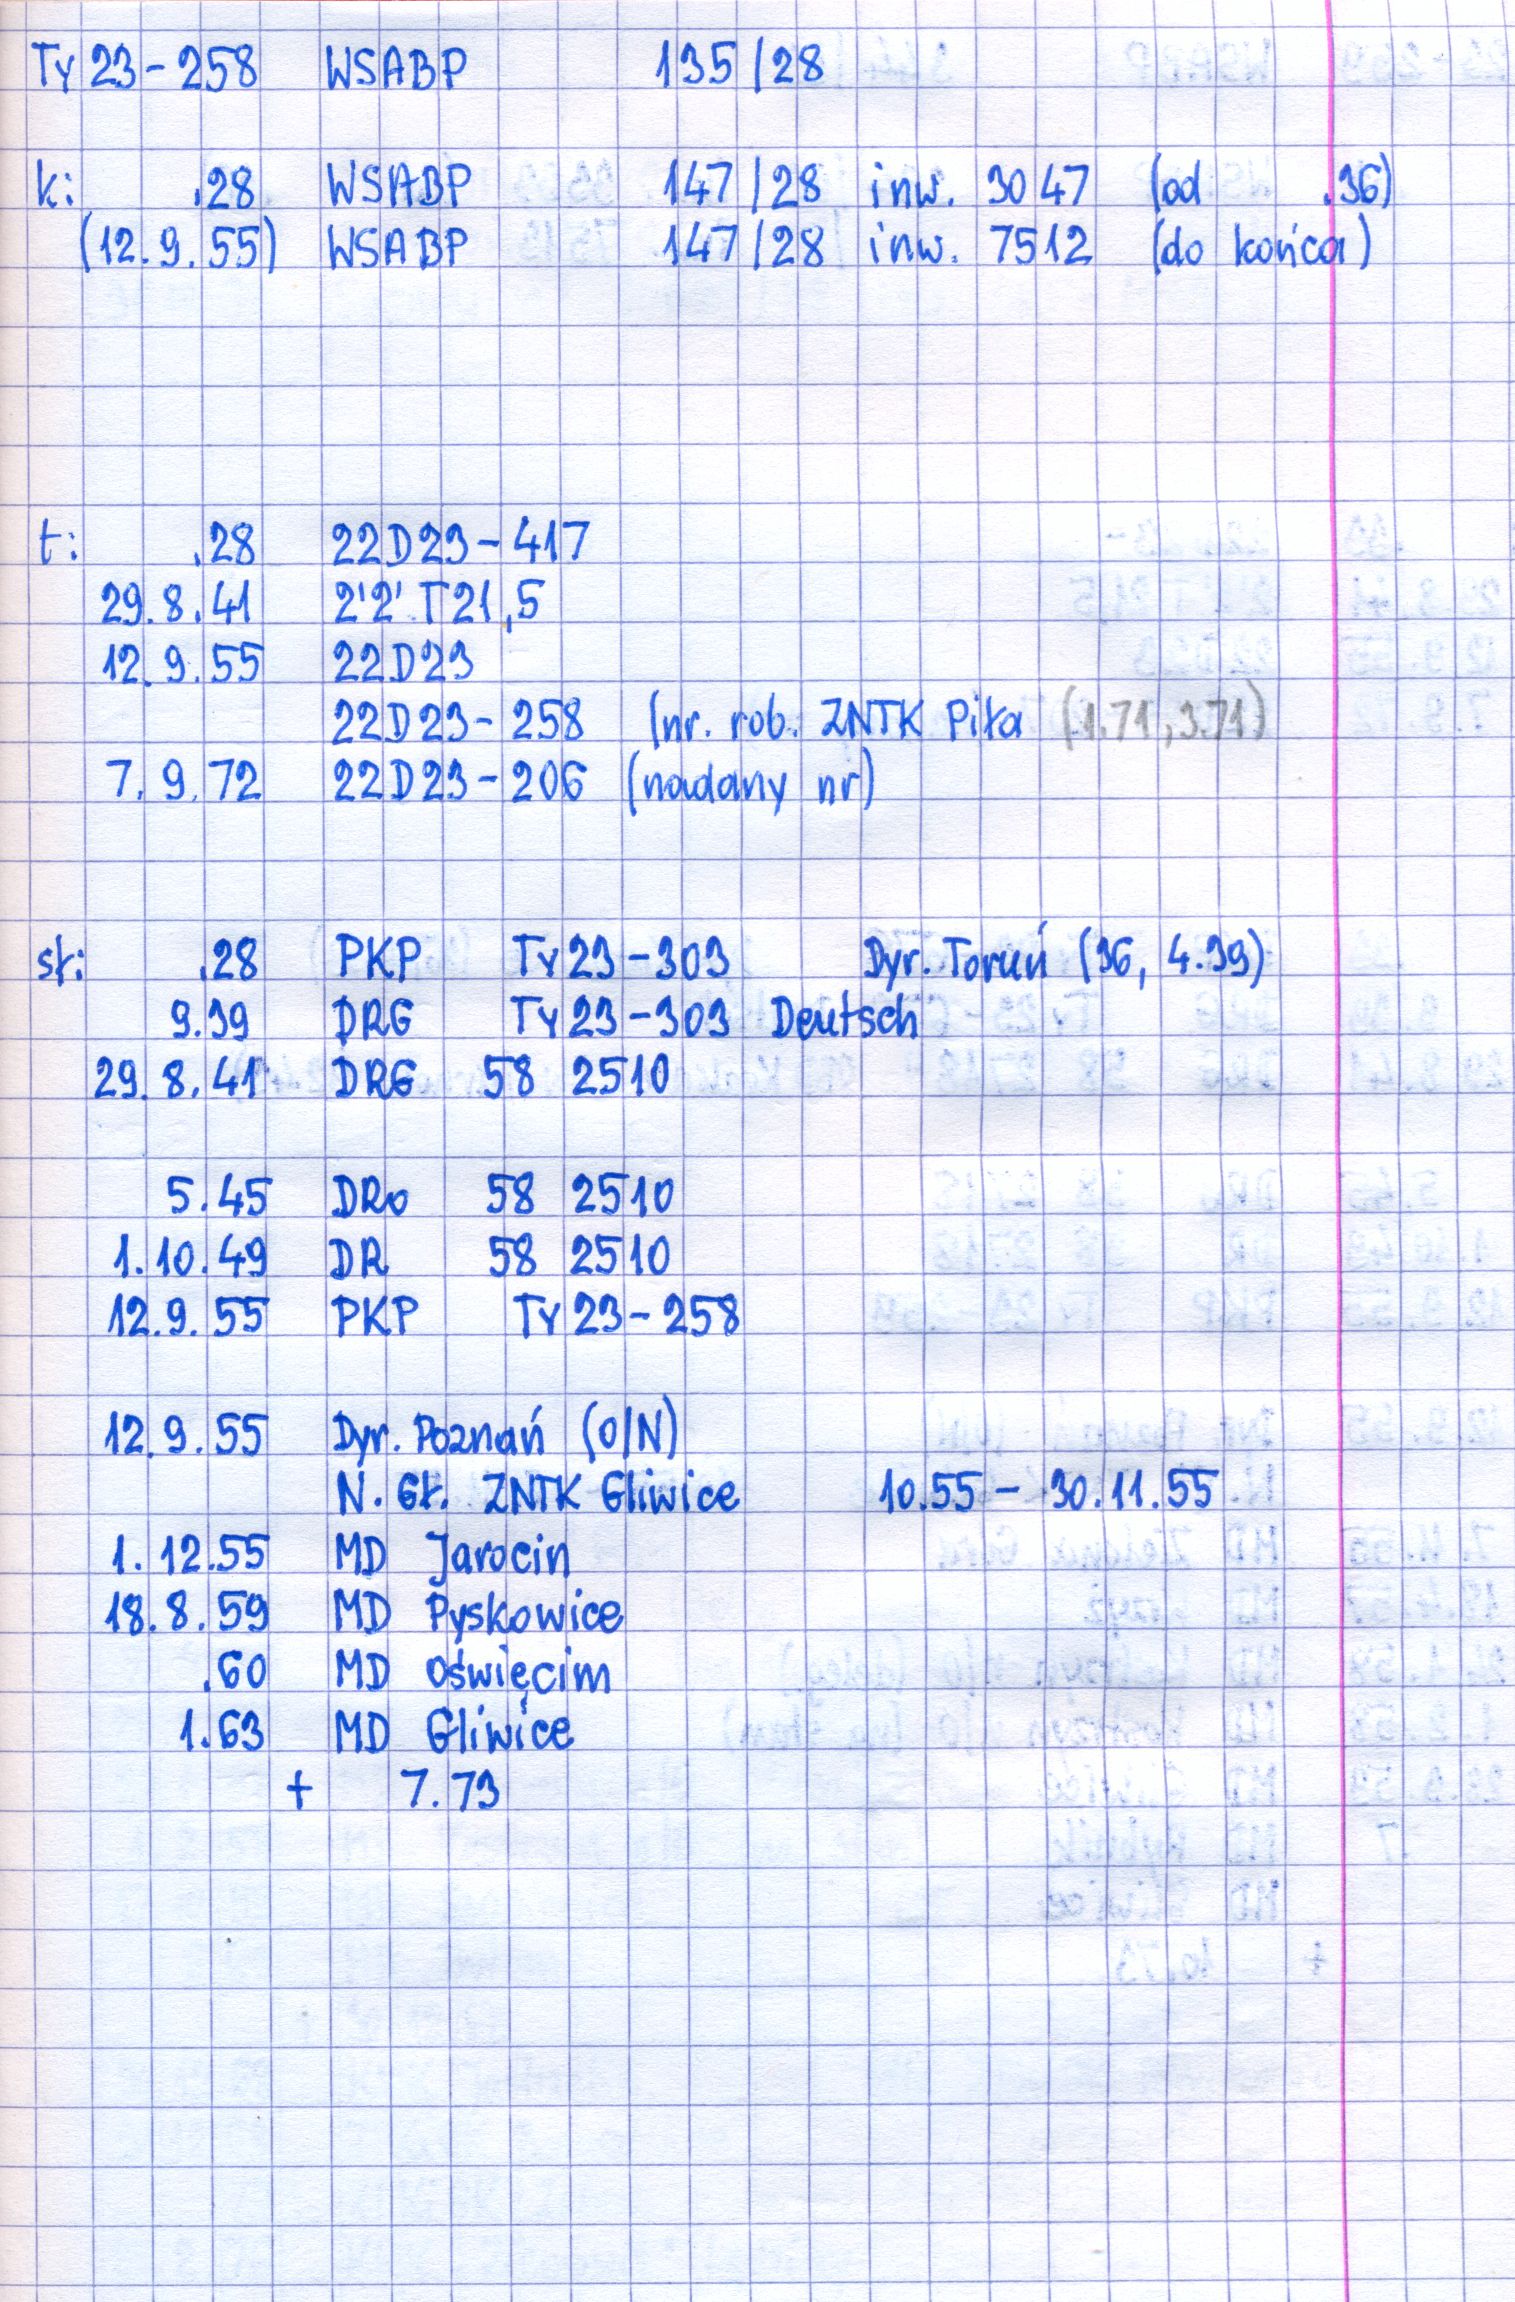 Ty 23-258 WSABP 135/28
k: .28 WSABP 147/28 inw. 3047 (od .36)
(12.9.55) WSABP 147/28 inw. 7512 (do końca)
t: .28 22D23-417
29.8.41 2'2' T21,5
12.9.55 22D23
22D23-258 (nr. rob. ZNTK Piła (1.71, 3.71)
7.9.72 22D23-206 (nadany nr)
sł: .28 PKP Ty 23-303 Dyr. Toruń (36, 4.39)
9.39 DRG Ty 23-303 Deutsch
29.8.41 DRG 58 2510
5.45 DRo 58 2510
1.10.49 DR 58 2510
12.9.55 PKP Ty 23-258
12.9.55 Dyr. Poznań (O/N)
N. Gł. ZNTK Gliwice 10.55 - 30.11.55
1.12.55 MD Jarocin
18.8.59 MD Pyskowice
.60 MD Oświęcim
1.63 MD Gliwice
+ 7.73